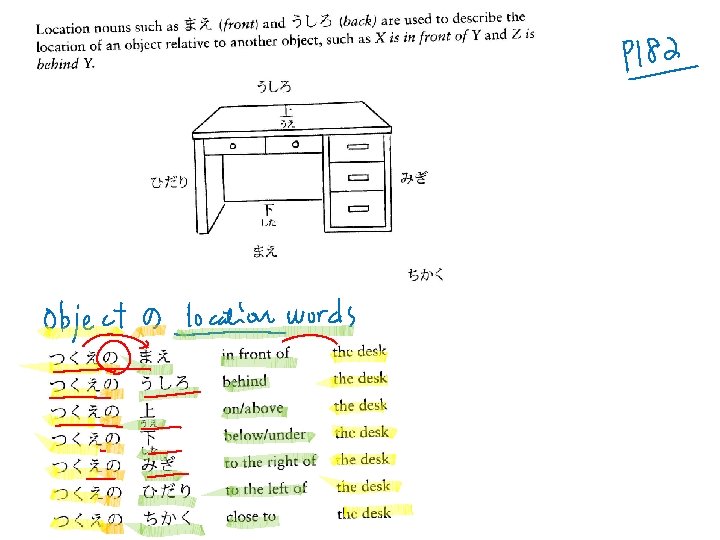 Location nouns such as まえ (front) and うしろ (back) are used to describe the
location of an object relative to another object, such as X is in front of Y and Z is
behind Y.
P182
うしろ
上
うえ
ひだり
みぎ
下
した
まえ
ちかく
Object の location words
つくえの まえ in front of the desk
つくえの うしろ behind the desk
つくえの 上 on/above the desk
うえ
つくえの 下 below/under the desk
した
つくえの みぎ to the right of the desk
つくえの ひだり to the left of the desk
つくえの ちかく close to the desk